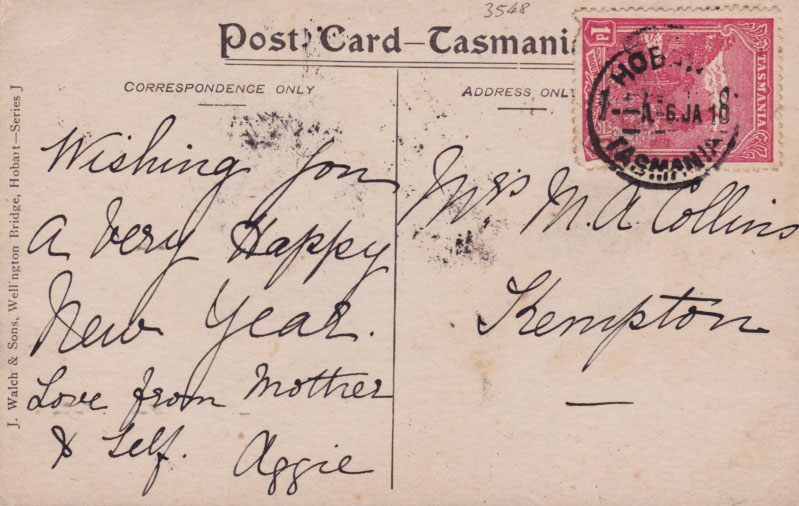 3548
Post Card–Tasmania
CORRESPONDENCE ONLY
ADDRESS ONLY
1d
TASMANIA
HOBART
A-6.JA 10
TASMANIA
Wishing you
a Very Happy
New Year.
Love from Mother
& Self. Aggie
Mrs M. A Collins
Kempton
J. Walch & Sons, Wellington Bridge, Hobart—Series J